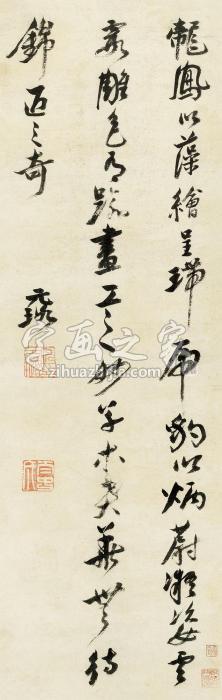 龍鳳以藻繪呈瑞虎豹以炳蔚凝姿雲
霞雕色有踰畫工之妙草木賁華無待
錦匠之奇
字画之家
www.zihuazhijia.com